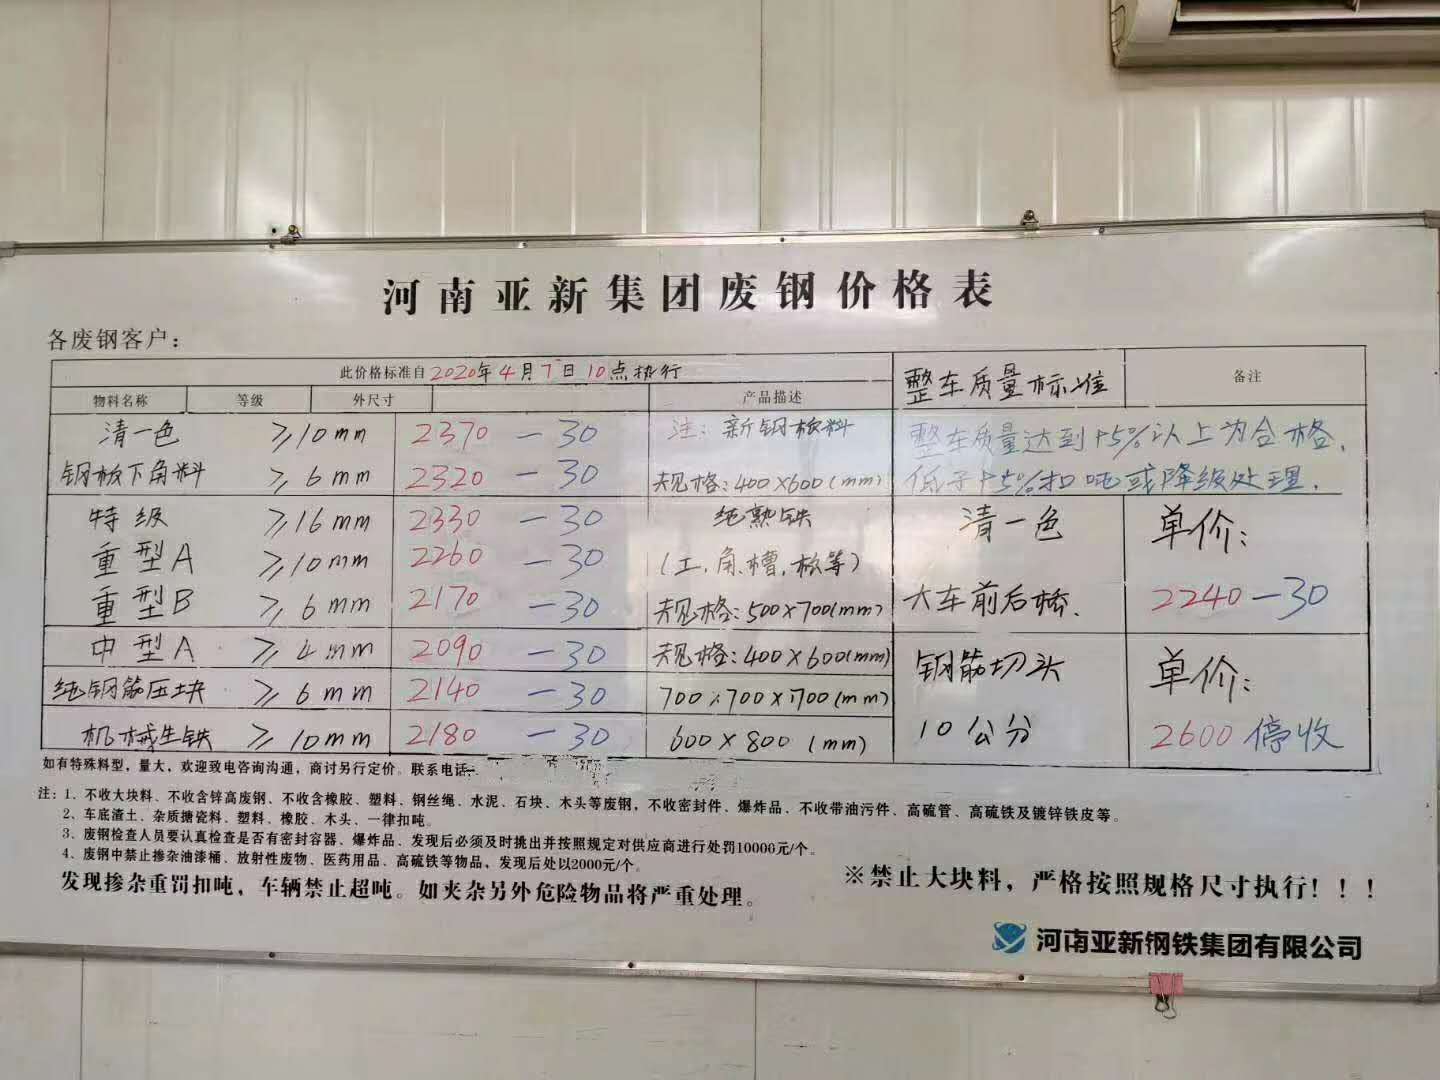 河南亚新集团废钢价格表
各废钢客户：
此价格标准自2020年4月7日10点执行
整车质量标准
备注
物料名称 等级 外尺寸 产品描述
清一色 ≥10mm 2370 -30 注：新钢板料
钢板下角料 ≥6mm 2320 -30 规格：400×600(mm)
整车质量达到 以上为合格，
低于 扣吨或降级处理．
特级 ≥16mm 2330 -30 纯熟铁
重型A ≥10mm 2260 -30 (工．角．槽．板等)
重型B ≥6mm 2170 -30 规格：500×700(mm)
清一色 单价：
大车前后桥． 2240-30
中型A ≥4mm 2090 -30 规格：400×600(mm)
纯钢筋压块 ≥6mm 2140 -30 700×700×700(mm)
机械生铁 ≥10mm 2180 -30 600×800 (mm)
钢筋切头 单价：
10公分 2600 停收
如有特殊料型，量大，欢迎致电咨询沟通，商讨另行定价。联系电话
注：1、不收大块料、不收含锌高废钢、不收含橡胶、塑料、钢丝绳、水泥、石块、木头等废钢，不收密封件、爆炸品、不收带油污件、高硫管、高硫铁及镀锌铁皮等。
2、车底渣土、杂质搪瓷料、塑料、橡胶、木头、一律扣吨。
3、废钢检查人员要认真检查是否有密封容器、爆炸品、发现后必须及时挑出并按照规定对供应商进行处罚10000元/个。
4、废钢中禁止掺杂油漆桶、放射性废物、医药用品、高硫铁等物品，发现后处以2000元/个。
发现掺杂重罚扣吨，车辆禁止超吨。如夹杂另外危险物品将严重处理。
※禁止大块料，严格按照规格尺寸执行！！！
河南亚新钢铁集团有限公司